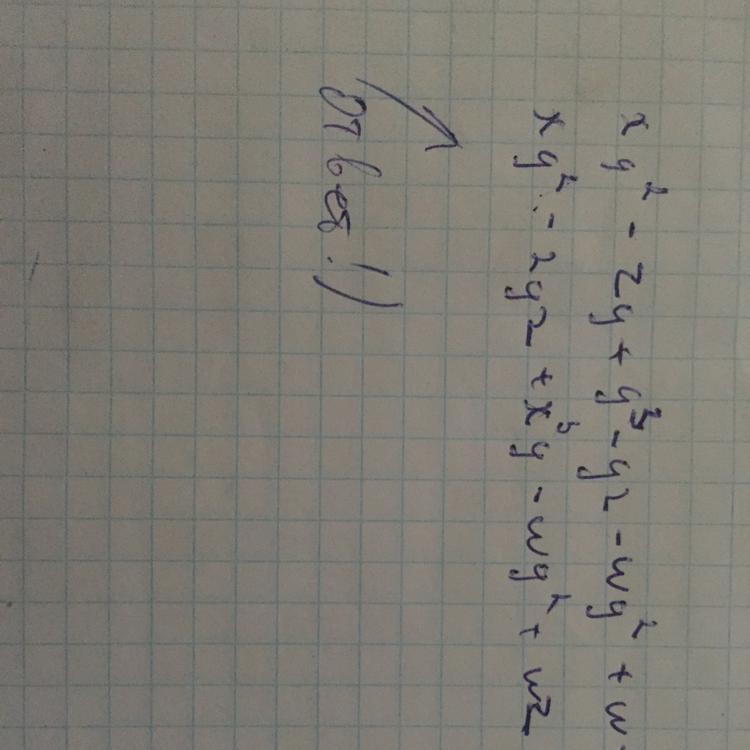 xy² - 2y + y³ - y2 - wy² + w
xy² - 2y2 + x³y - wy² + w2
Ответ!)